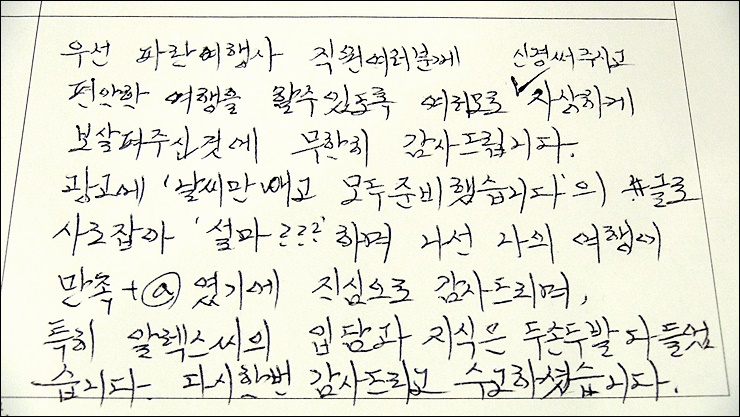 우선 파란여행사 직원여러분께 신경써주시고
편안한 여행을 할수있도록 여러모로 ✓자상하게
보살펴주신것에 무한히 감사드립니다.
광고에 '날씨만 빼고 모두준비했습니다'의 #글로
사로잡아 '설마???' 하며 나선 나의 여행에
만족+@였기에 진심으로 감사드리며,
특히 알렉스씨의 입담과 지식은 두손두발 다들었
습니다. 다시한번 감사드리고 수고하셨습니다.